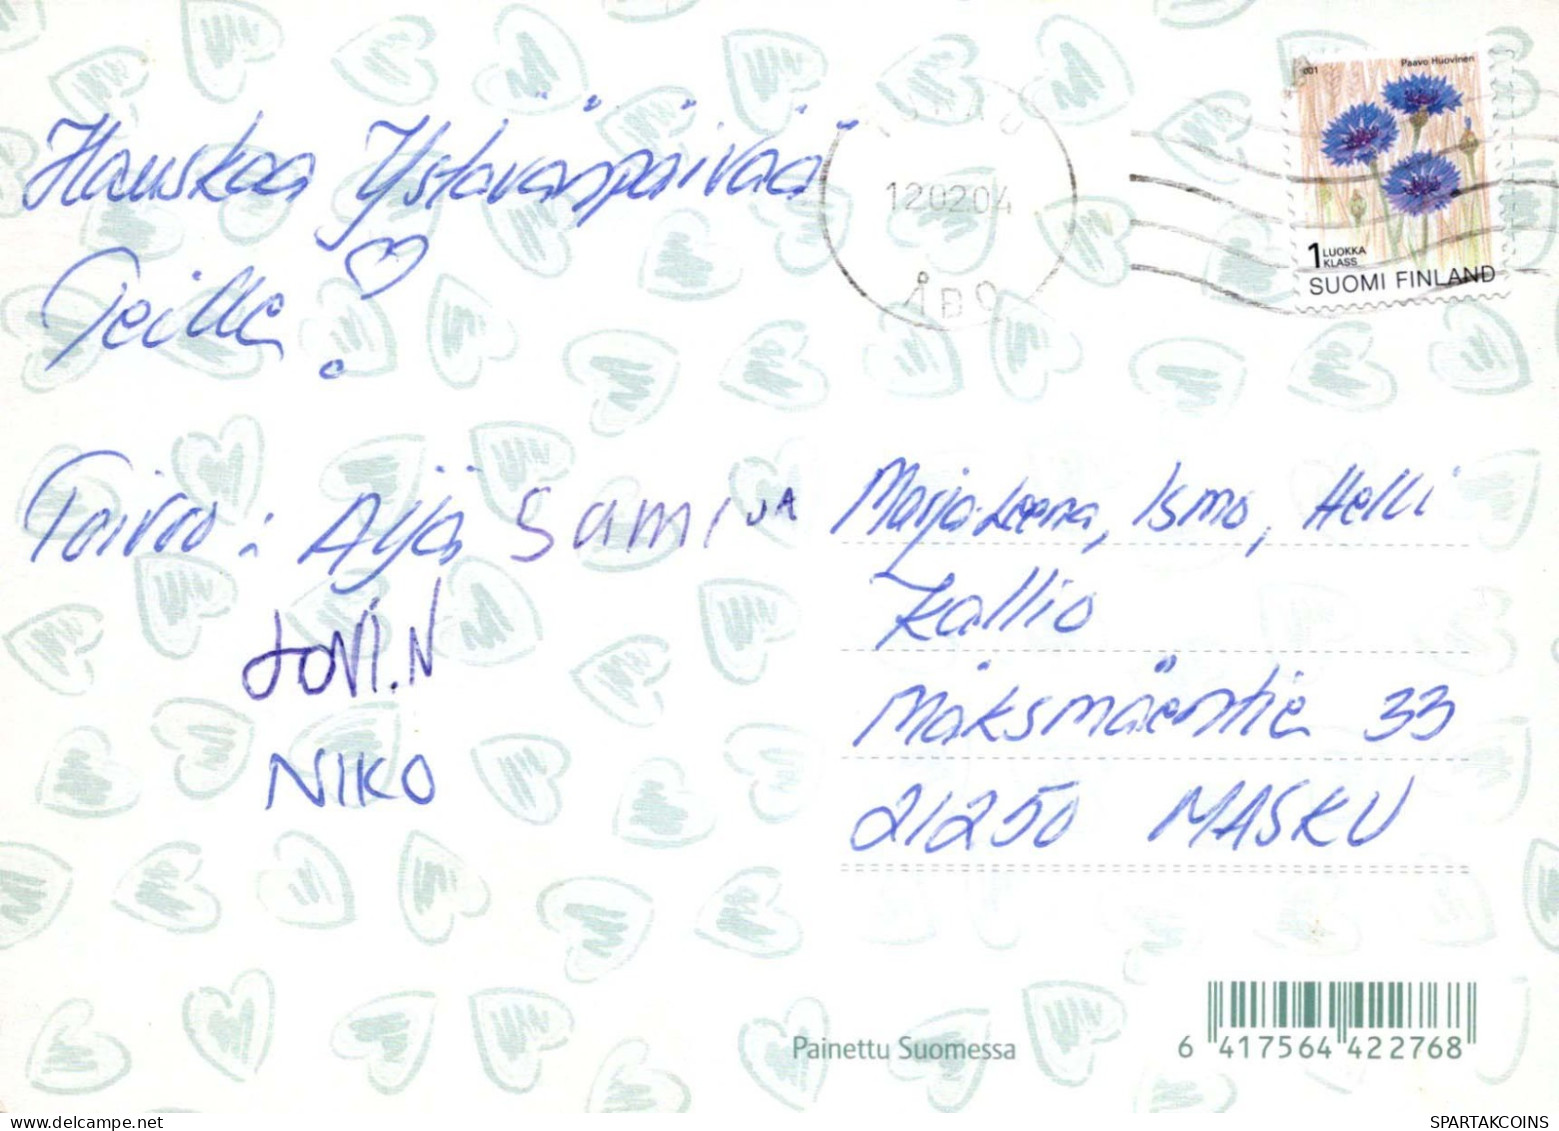 Hauskaa Ystävänpäivää
Teille!
Toivoo: Aija Sami
JONI.N
NIKO
12.02.04
ÅBO
2001
Paavo Huovinen
1 LUOKKA
KLASS
SUOMI FINLAND
Marja-Leena, Ismo, Helli
Kallio
Maksmäentie 33
21250 MASKU
Painettu Suomessa
6 417564 422768
SPARTAKCOINS